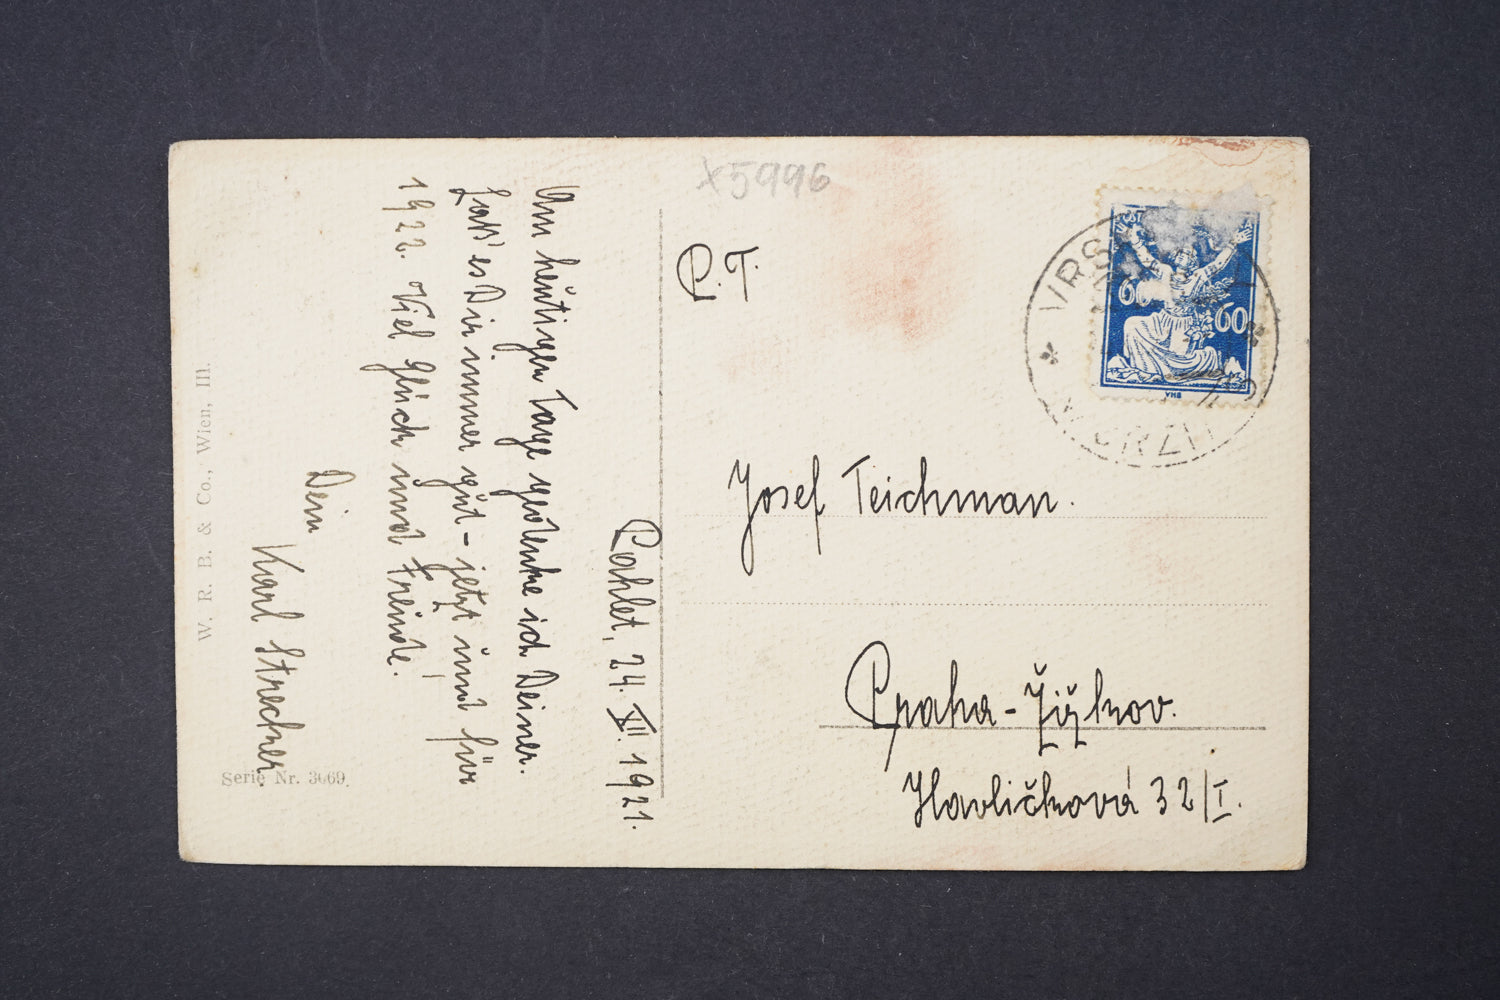 x5996
P. T.
Josef Teichman.
Praha-Žižkov.
Havlíčková 32/I.
60
60
VRS
WURZM
Pahlet, 24. XII. 1921.
Am heutigen Tage gedenke ich Deiner.
Laß' es Dir immer gut - jetzt und für
1922. Viel Glück und Freude!
Dein
Karl Strechner
W. R. B. & Co., Wien, III.
Serie Nr. 3069.